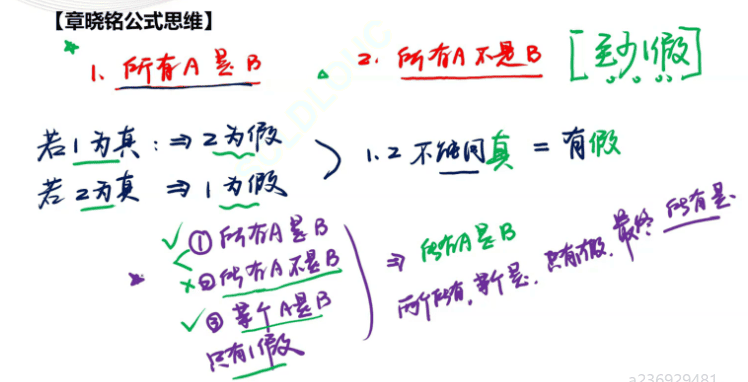 【章晓铭公式思维】
1. 所有A是B  2. 所有A不是B [至少1假]
若1为真：⇒ 2为假
若2为真 ⇒ 1为假
1.2 不能同真 = 有假
✓ ① 所有A是B
× ② 所有A不是B
✓ ③ 某个A是B
只有1假
⇒ 所有A是B
两个所有，某个是，只有1假，最终 所有是
a236929481